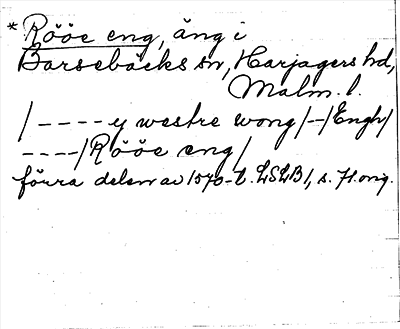 * Rööe eng, äng i
Barsebäcks sn, Harjagers hd,
Malm. l.
/ - - - - y westre wong /-/ Engh/
- - - -/ Rööe eng /
förra delen av 1570-t. LSLB 1, s. 71. orig.